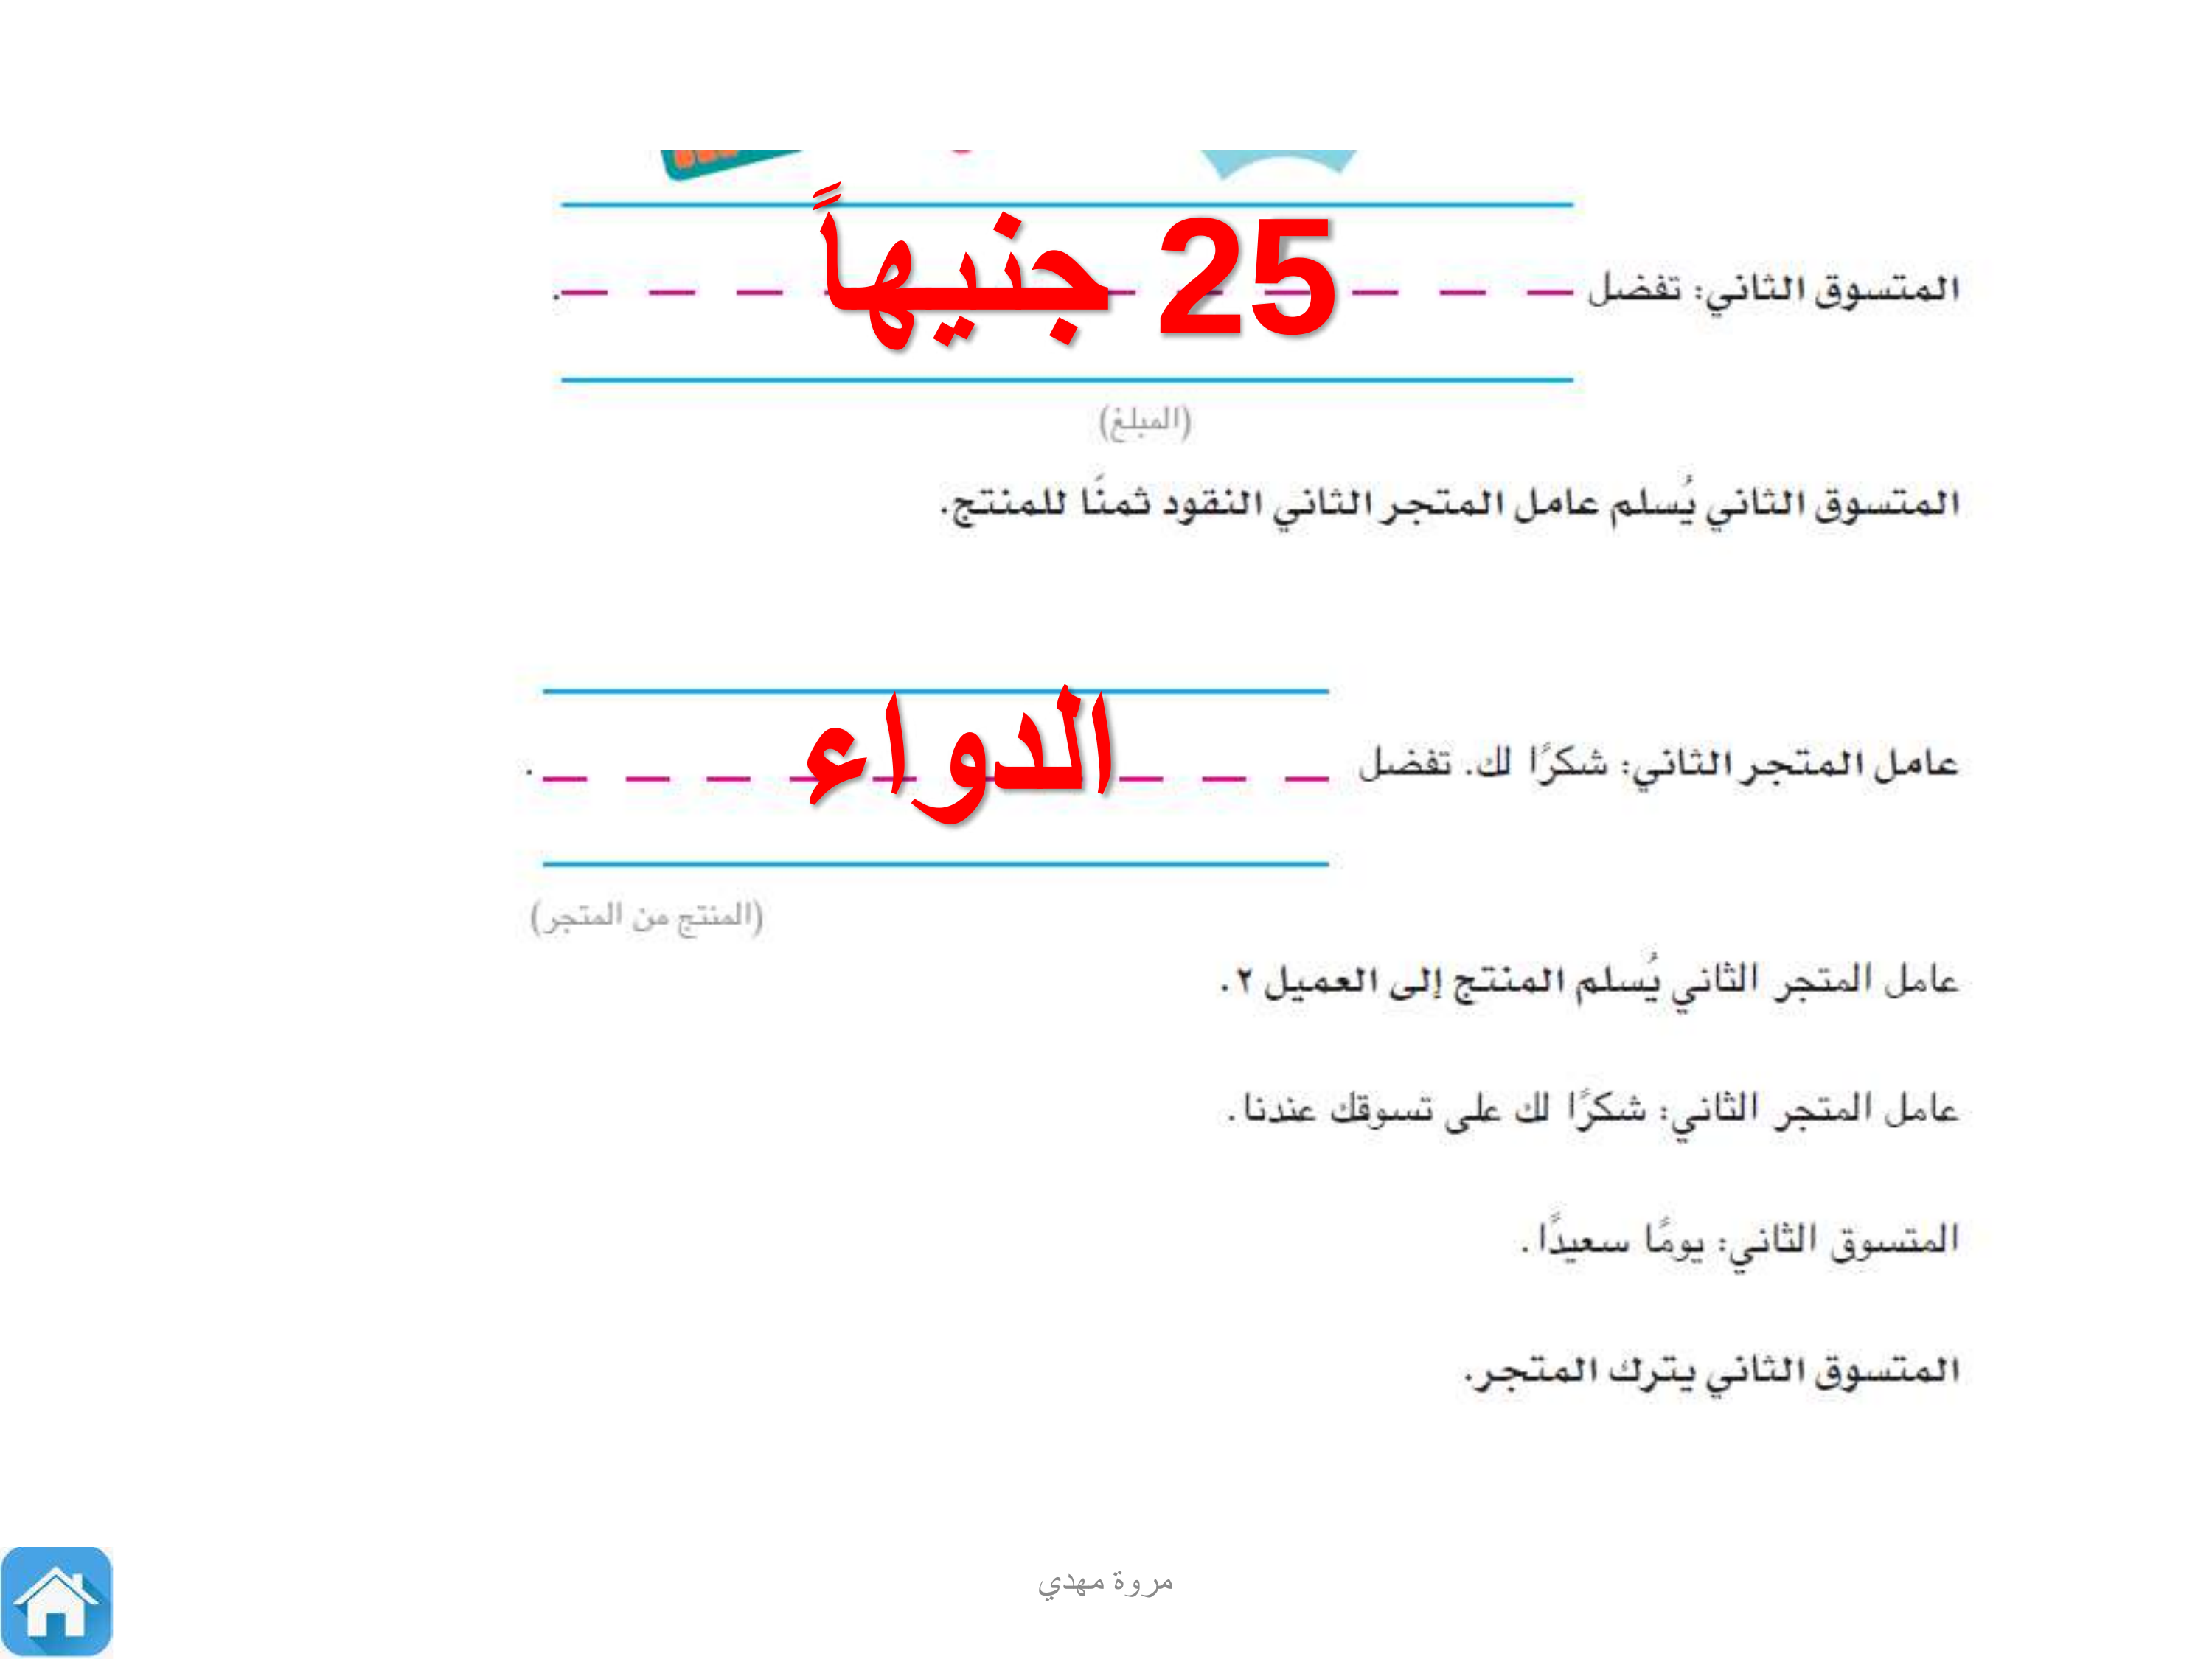 المتسوق الثاني: تفضل 25 جنيهاً.
(المبلغ)
المتسوق الثاني يُسلم عامل المتجر الثاني النقود ثمنًا للمنتج.
عامل المتجر الثاني: شكرًا لك. تفضل الدواء.
(المنتج من المتجر)
عامل المتجر الثاني يُسلم المنتج إلى العميل ٢.
عامل المتجر الثاني: شكرًا لك على تسوقك عندنا.
المتسوق الثاني: يومًا سعيدًا.
المتسوق الثاني يترك المتجر.
مروة مهدي